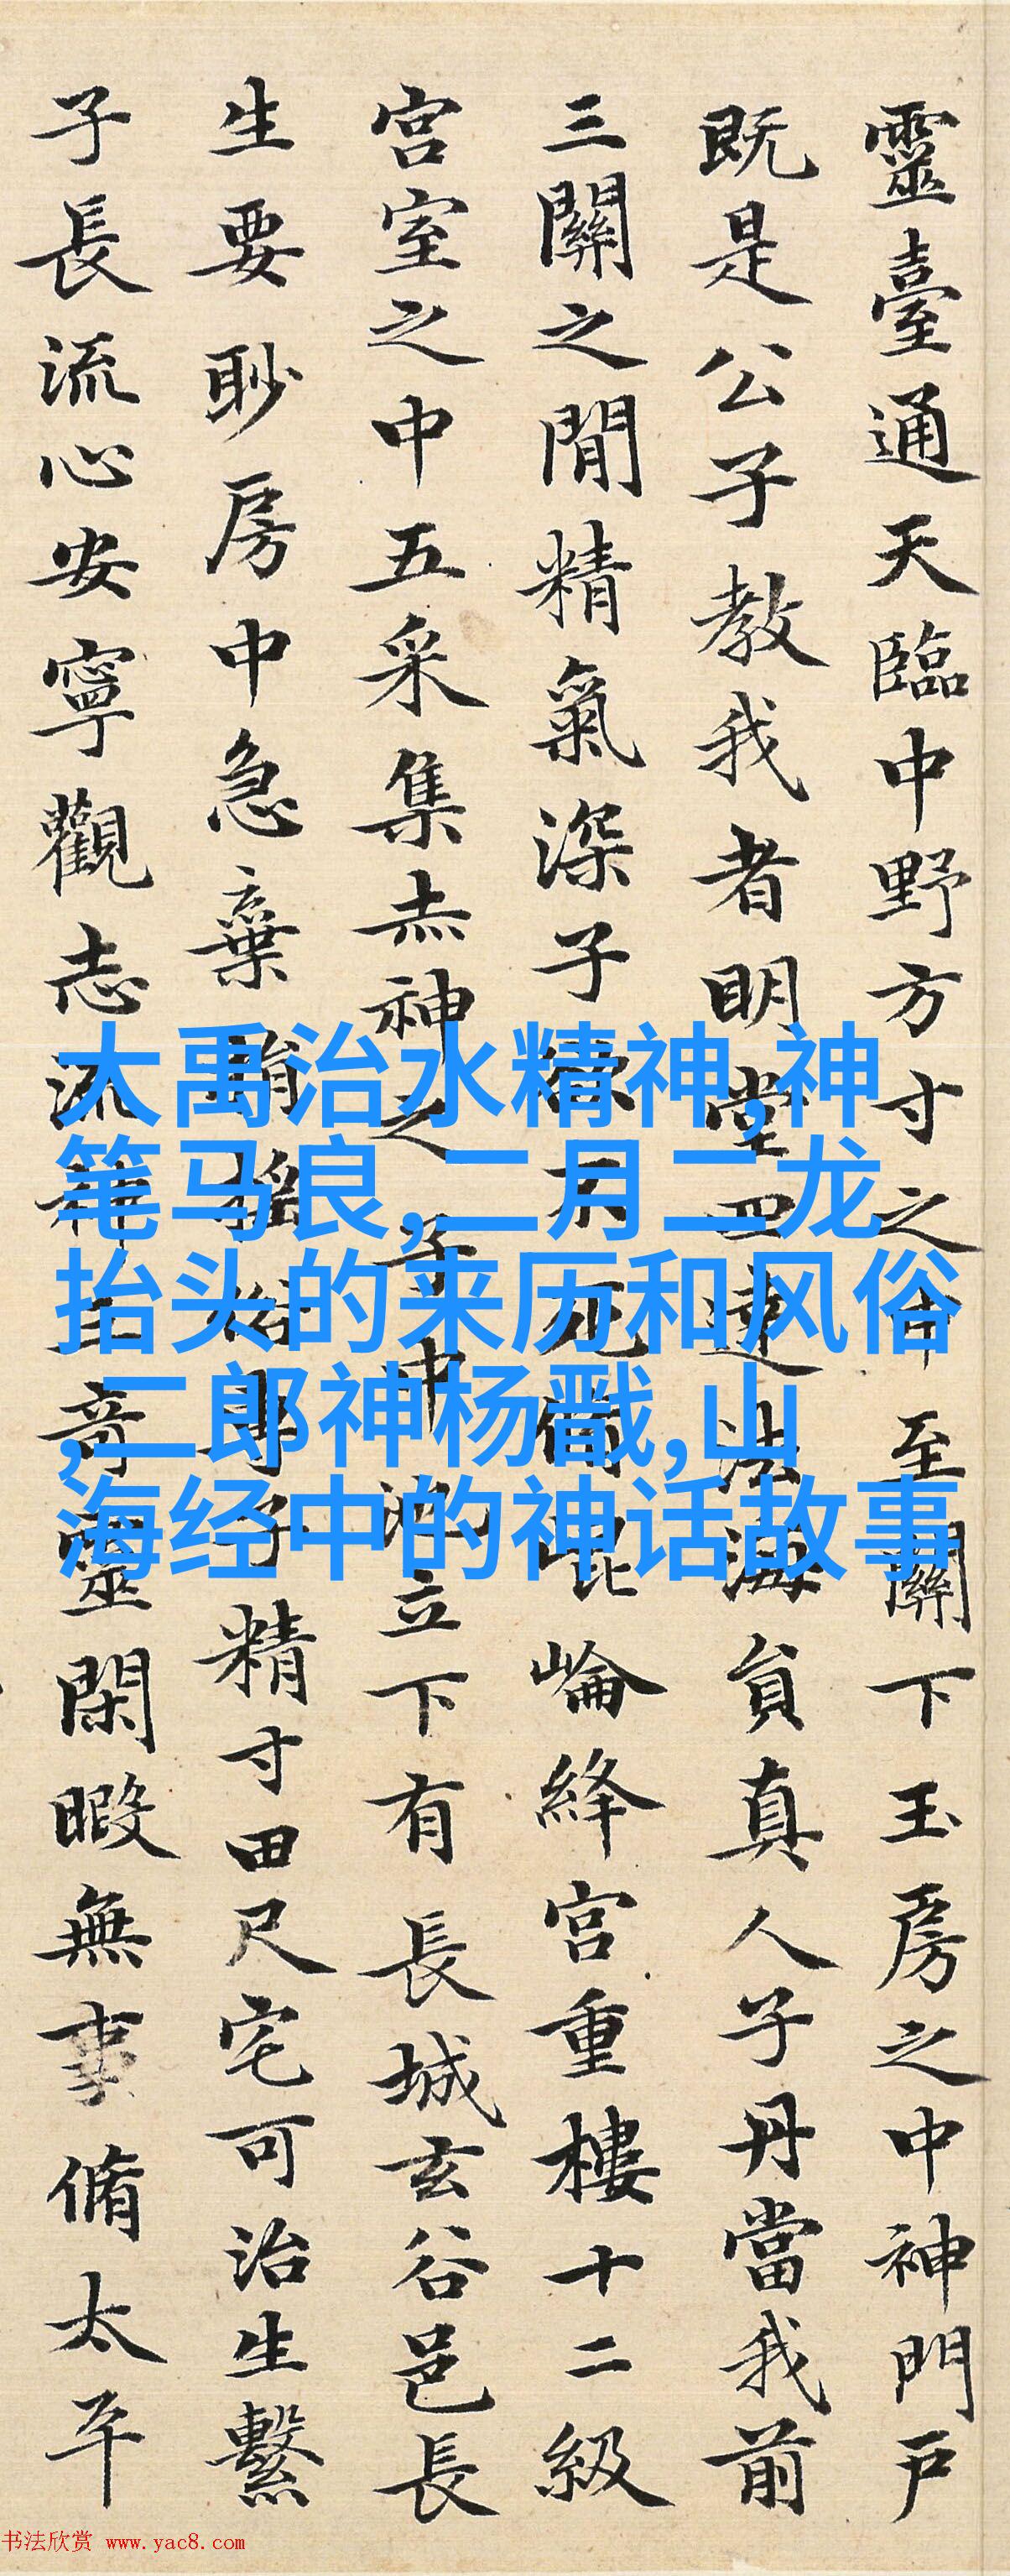 靈臺通天臨中野方寸之中至關下玉房之中神門戶
既是公子教我者明堂四達法海員真人子丹當我前
三關之閒精氣深子欲不死脩崐崘絳宮重樓十二級
宮室之中五采集赤神之子中池立下有長城玄谷邑長
生要眇房中急棄捐搖俗專子精寸田尺宅可治生繫
子長流心安寧觀志流神三奇靈閑暇無事脩太平
大禹治水精神,神
笔马良,二月二龙
抬头的来历和风俗
,二郎神杨戬,山
海经中的神话故事
书法欣赏 www.yac8.com